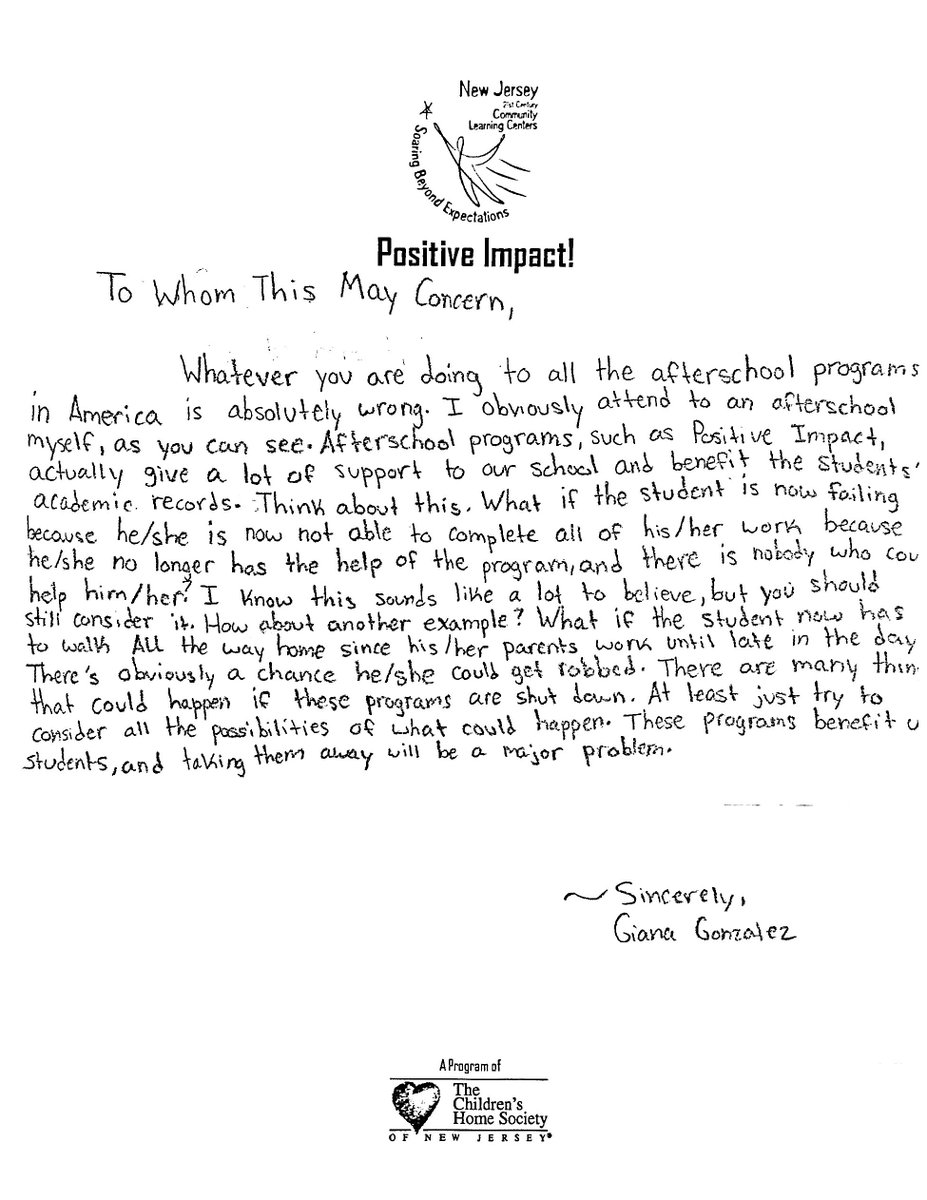 New Jersey
21st Century
Community
Learning Centers
Soaring Beyond Expectations
Positive Impact!
To Whom This May Concern,
Whatever you are doing to all the afterschool programs
in America is absolutely wrong. I obviously attend to an afterschool
myself, as you can see. Afterschool programs, such as Positive Impact,
actually give a lot of support to our school and benefit the students'
academic records. Think about this. What if the student is now failing
because he/she is now not able to complete all of his/her work because
he/she no longer has the help of the program, and there is nobody who cou
help him/her? I know this sounds like a lot to believe, but you should
still consider it. How about another example? What if the student now has
to walk All the way home since his/her parents work until late in the day
There's obviously a chance he/she could get robbed. There are many thin
that could happen if these programs are shut down. At least just try to
consider all the possibilities of what could happen. These programs benefit u
students, and taking them away will be a major problem.
~ Sincerely,
Giana Gonzalez
A Program of
The
Children's
Home Society
OF NEW JERSEY®